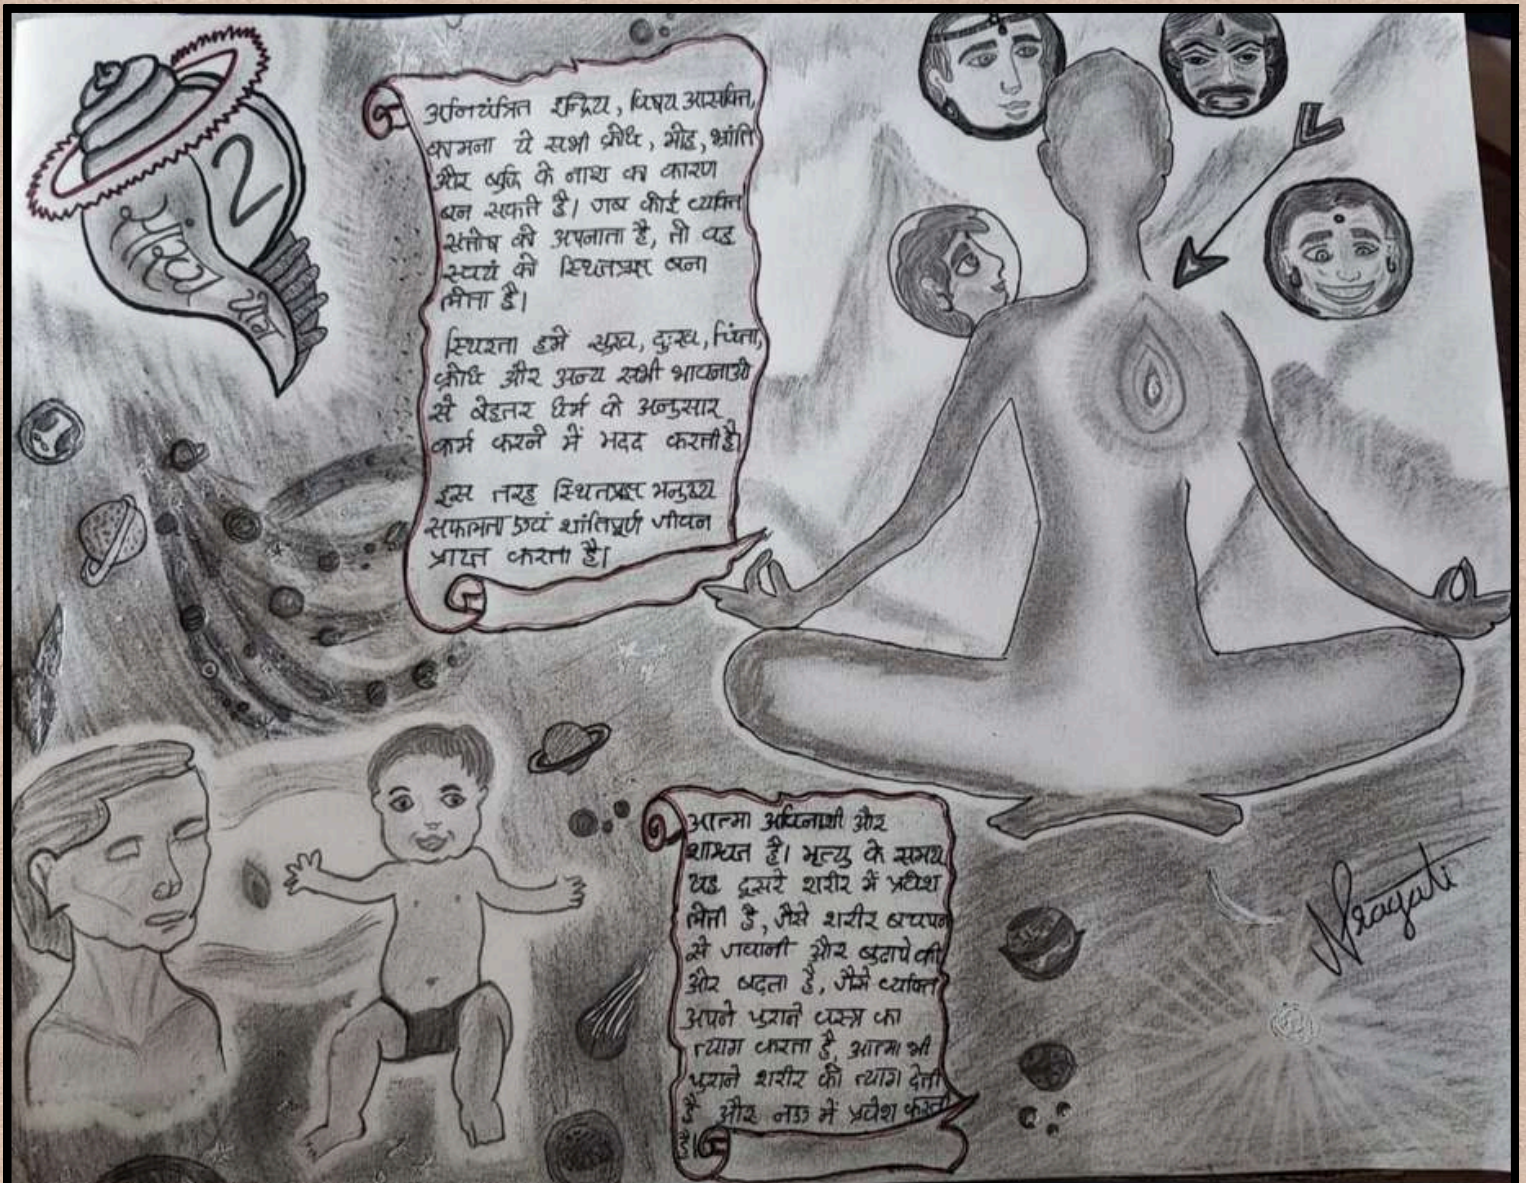 2
सांख्य योग
अनियंत्रित इन्द्रिय, विषय आसक्ति,
कामना ये सभी क्रोध, मोह, भ्रांति
और बुद्धि के नाश का कारण
बन सकते है। जब कोई व्यक्ति
संतोष को अपनाता है, तो वह
स्वयं को स्थितप्रज्ञ बना
लेता है।
स्थिरता हमें सुख, दुःख, चिंता,
क्रोध और अन्य सभी भावनाओं
से बेहतर धर्म के अनुसार
कर्म करने में मदद करती है।
इस तरह स्थितप्रज्ञ मनुष्य
सफलता एवं शांतिपूर्ण जीवन
प्राप्त करता है।
आत्मा अविनाशी और
शाश्वत है। मृत्यु के समय
वह दूसरे शरीर में प्रवेश
लेती है, जैसे शरीर बचपन
से जवानी और बुढापे की
और बढ़ता है, जैसे व्यक्ति
अपने पुराने वस्त्र का
त्याग करता है, आत्मा भी
पुराने शरीर को त्याग देती
है और नऊ में प्रवेश करती
है।
Pragati